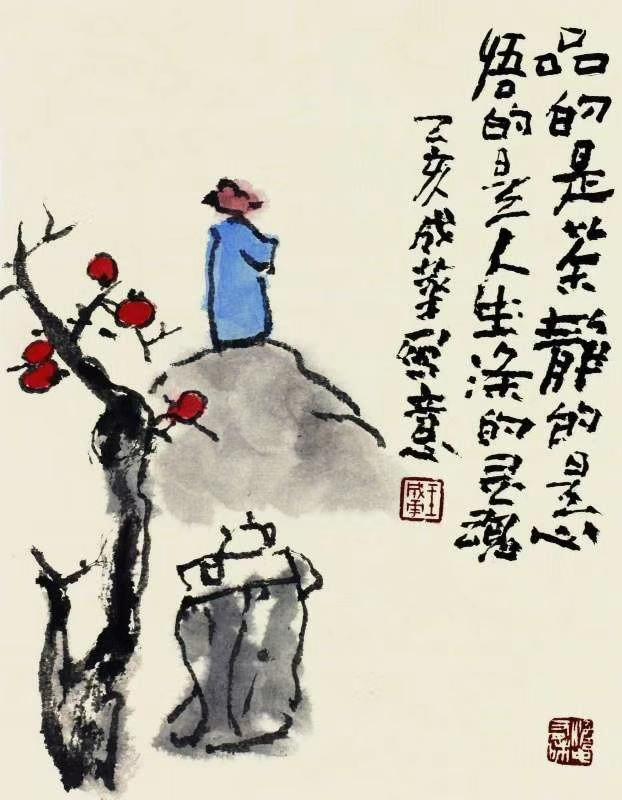 品的是茶靜的是心
悟的是人生涤的灵魂
丁亥成華寫意